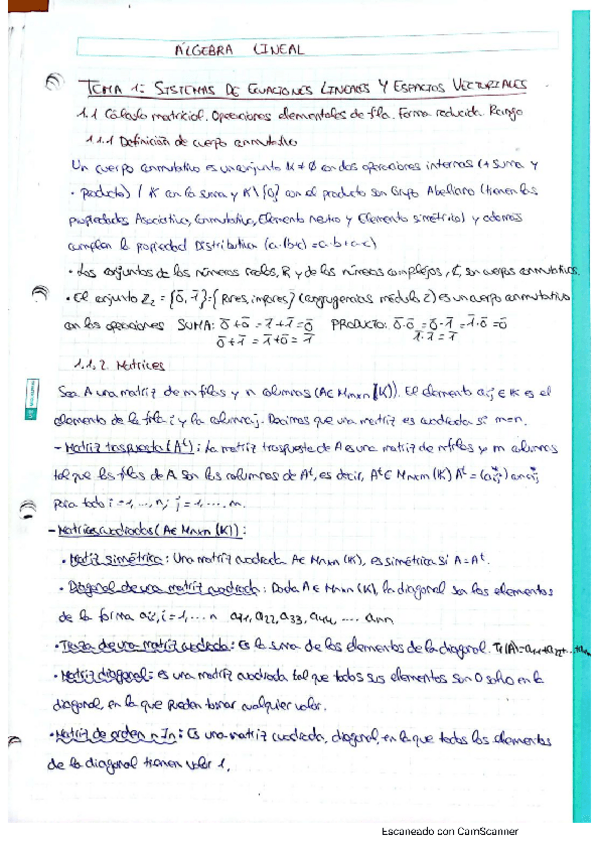 ÁLGEBRA LINEAL
TEMA 1: SISTEMAS DE ECUACIONES LINEALES Y ESPACIOS VECTORIALES
1.1 Cálculo matricial. Operaciones elementales de fila. Forma reducida. Rango
1.1.1 Definición de cuerpo conmutativo
Un cuerpo conmutativo es un conjunto K ≠ ∅ con dos operaciones internas (+ suma y
· producto) / K con la suma y K\{0} con el producto son Grupo Abeliano (tienen las
propiedades Asociativa, Conmutativa, Elemento neutro y Elemento simétrico) y además
cumplen la propiedad Distributiva (a·(b+c) = a·b + a·c)
• Los conjuntos de los números reales, R y de los números complejos, C, son cuerpos conmutativos.
• El conjunto Z₂ = {0̄, 1̄} = {Pares, impares} (congruencias módulo 2) es un cuerpo conmutativo
con las operaciones SUMA: 0̄+0̄ = 1̄+1̄ = 0̄ PRODUCTO: 0̄·0̄ = 0̄·1̄ = 1̄·0̄ = 0̄
0̄+1̄ = 1̄+0̄ = 1̄ 1̄·1̄ = 1̄
1.1.2. Matrices
Sea A una matriz de m filas y n columnas (A∈ Mmxn (K)). El elemento aij ∈ K es el
elemento de la fila i y la columna j. Decimos que una matriz es cuadrada si m=n.
- Matriz traspuesta (Aᵗ): La matriz traspuesta de A es una matriz de n filas y m columnas
tal que las filas de A son las columnas de Aᵗ, es decir, Aᵗ∈ Mnxm (K) Aᵗ = (aij*) con aij*
para todo i = 1, ..., n; j = 1, .... m.
- Matrices cuadradas (A∈ Mnxn (K)):
• Matriz simétrica: Una matriz cuadrada A∈ Mnxn (K), es simétrica si A = Aᵗ.
• Diagonal de una matriz cuadrada: Dada A ∈ Mnxn (K), la diagonal son los elementos
de la forma aii, i = 1, ... n a11, a22, a33, a44, .... ann
• Traza de una matriz cuadrada: Es la suma de los elementos de la diagonal. Tr(A) = a11+a22+...+ann
• Matriz diagonal: es una matriz cuadrada tal que todos sus elementos son 0 salvo en la
diagonal, en la que pueden tomar cualquier valor.
• Matriz de orden n In: Es una matriz cuadrada, diagonal, en la que todos los elementos
de la diagonal tienen valor 1.
Escaneado con CamScanner